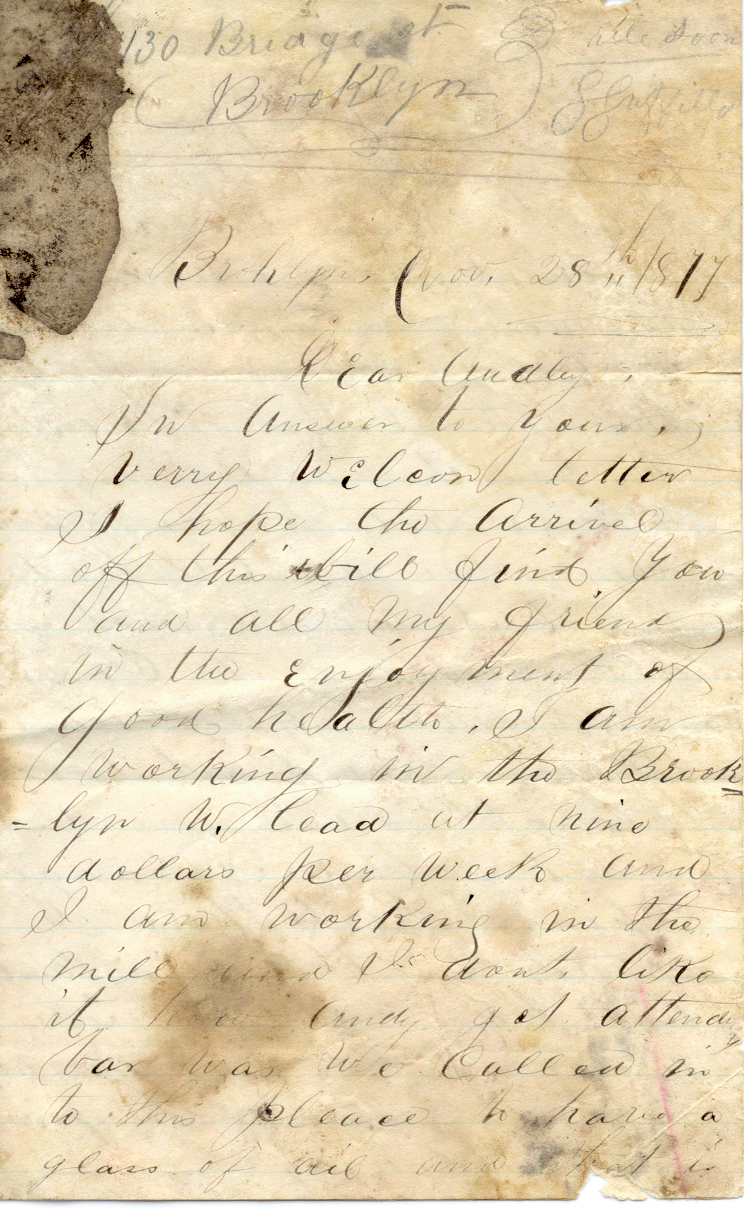 130 Bridge st
(Brooklyn) soon
Nov. 28th 1877
Dear Audley.
In Answer to yours,
verry Welcom letter
I hope the Arrivel
off this will find you
and all my friend
in the Enjoyment of
good health. I am
working in the Brook
=lyn W. lead at nine
dollars per week and
I am working in the
mill and I dont like
it how Andy got attendg
bar was We Called in
to this pleace to have a
glass of ail and that is